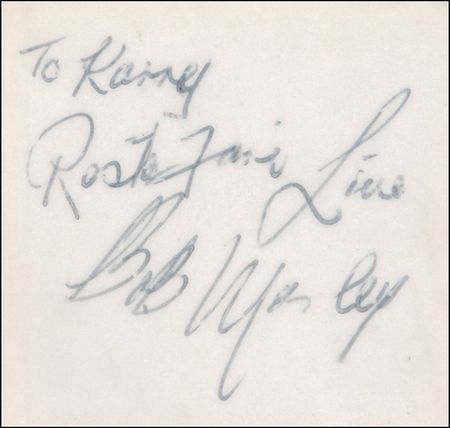 To Karry
Rasta Fari Live
Bob Marley